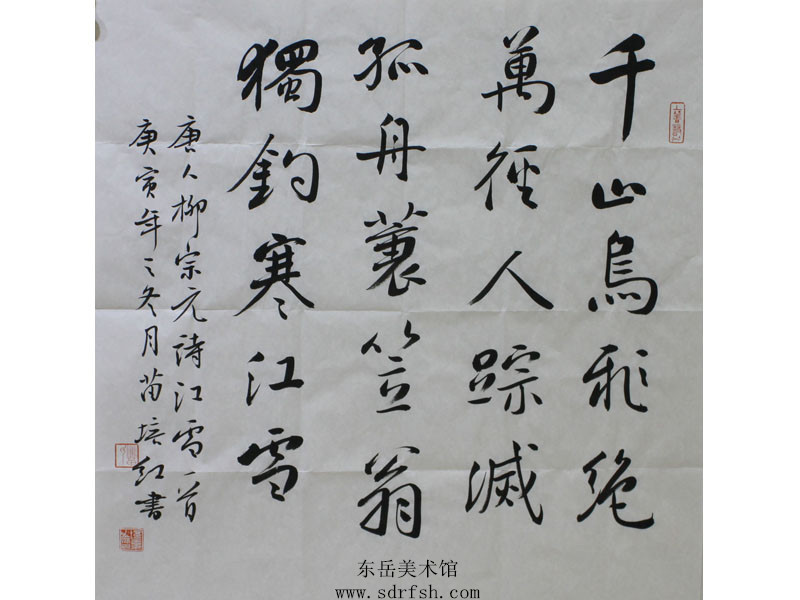 千山鳥飛絕
萬徑人踪滅
孤舟蓑笠翁
獨釣寒江雪
唐人柳宗元詩江雪一首
庚寅年之冬月苗培红書
东岳美术馆
www.sdrfsh.com